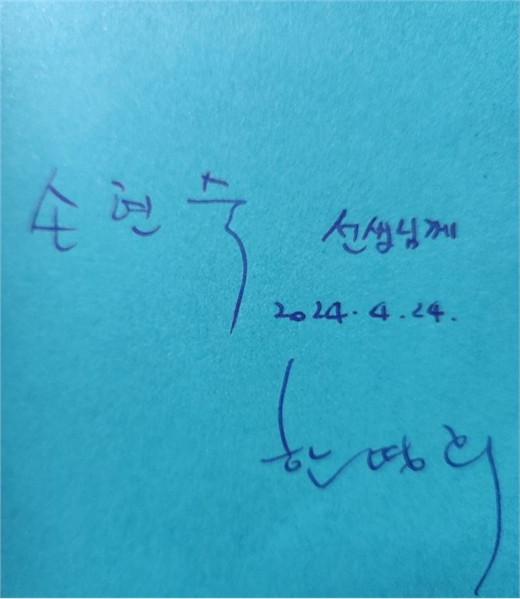 손현숙 선생님께
2024.4.24.